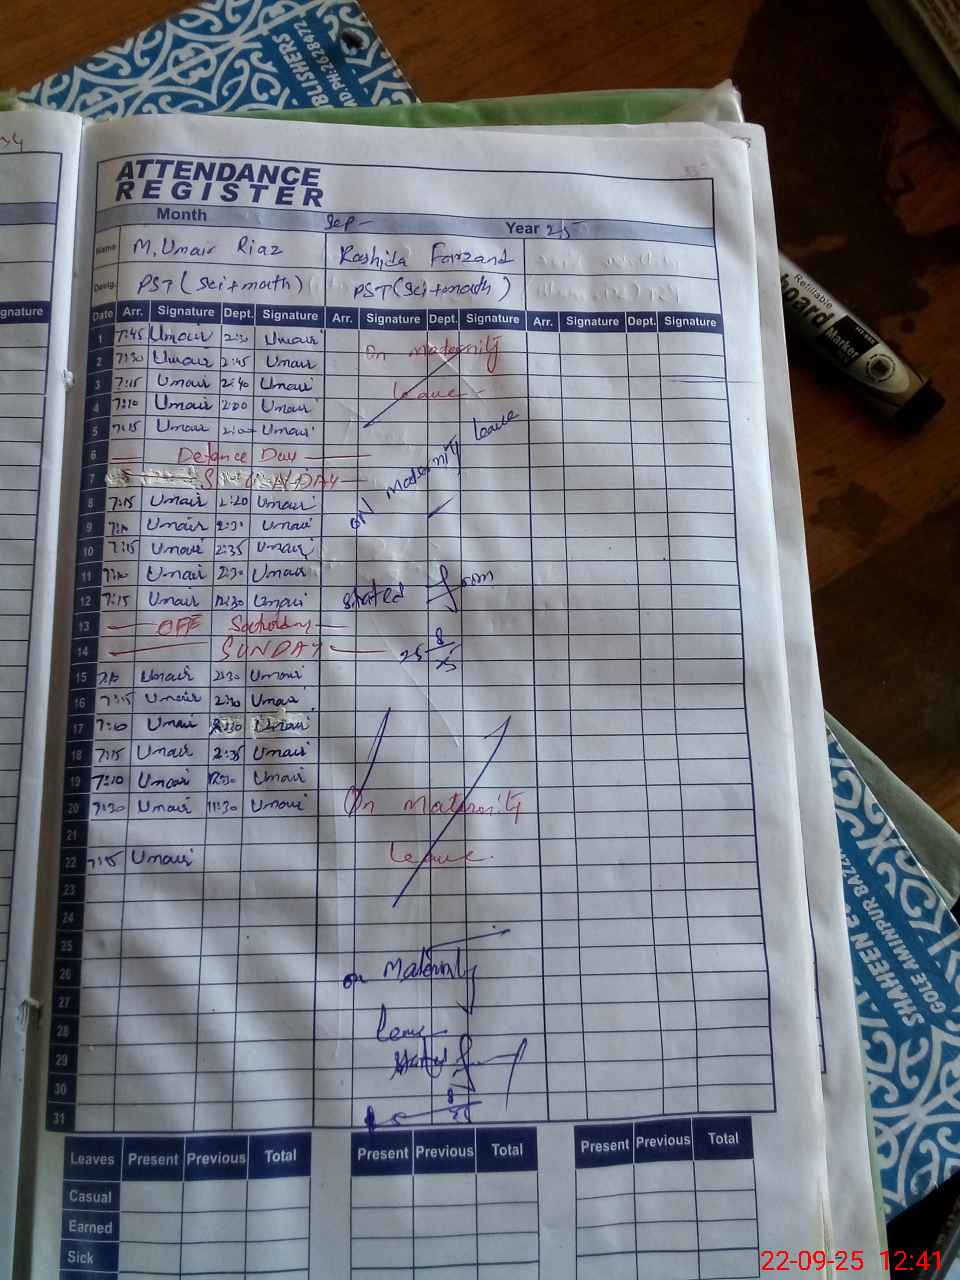 BLISHERS
AD.PH:2628472
ATTENDANCE
REGISTER
Month Sep- Year 25
Name M. Umair Riaz Rashida Farzand
Desig. PST (Sci+math) PST (Sci+math)
gnature
Date Arr. Signature Dept. Signature Arr. Signature Dept. Signature Arr. Signature Dept. Signature
1 7:45 Umair 2:30 Umair On maternity
2 7:30 Umair 2:45 Umair
3 7:15 Umair 2:40 Umair leave
4 7:10 Umair 2:00 Umair
5 7:15 Umair Umair
6 Defence Day
7 SUNDAY
ON maternity leave
8 7:15 Umair 2:20 Umair
9 Umair Umair
10 7:15 Umair 2:35 Umair
11 7:10 Umair 2:30 Umair
12 7:15 Umair 12:30 Umair started from
13 OFF
14 SUNDAY 25 8
15 7:10 Umair 2:30 Umair
16 7:15 Umair 2:30 Umair
17 7:10 Umair 2:30 Umair
18 7:15 Umair 2:35 Umair
19 7:10 Umair 12:30 Umair
20 7:30 Umair 11:30 Umair On maternity
21
22 7:15 Umair leave.
23
24
25
26 on Maternity
27
28 leave
29
30 8
31 25
Leaves Present Previous Total Present Previous Total Present Previous Total
Casual
Earned
Sick
Refillable
board Marker
SHAHEEN
GOLE AMINPUR BAZA
22-09-25 12:41